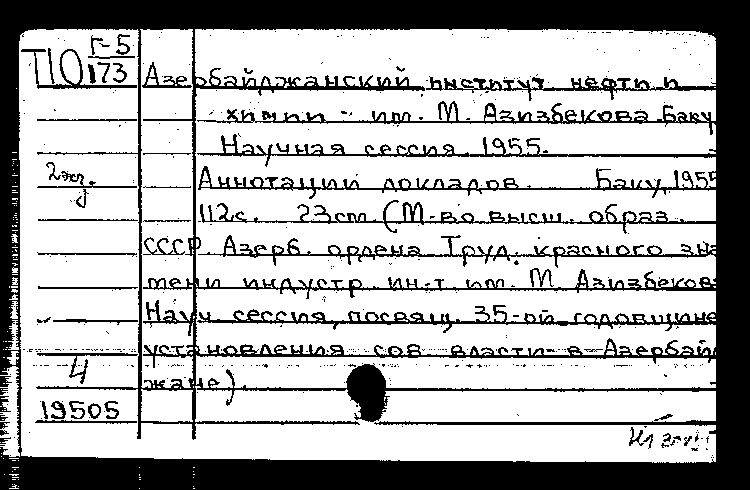 Т10 Г-5
173
Азербайджанский институт нефти и
химии - им. М. Азизбекова Баку
Научная сессия 1955.
2 экз.
Аннотации докладов. Баку, 1955
112с. 23cm (М-во высш. образ.
СССР. Азерб. ордена Труд. красного зна
мени индустр. ин-т им. М. Азизбекова
Науч. сессия, посвящ. 35-ой годовщине
установления сов. власти в Азербайд
4
жане).
19505